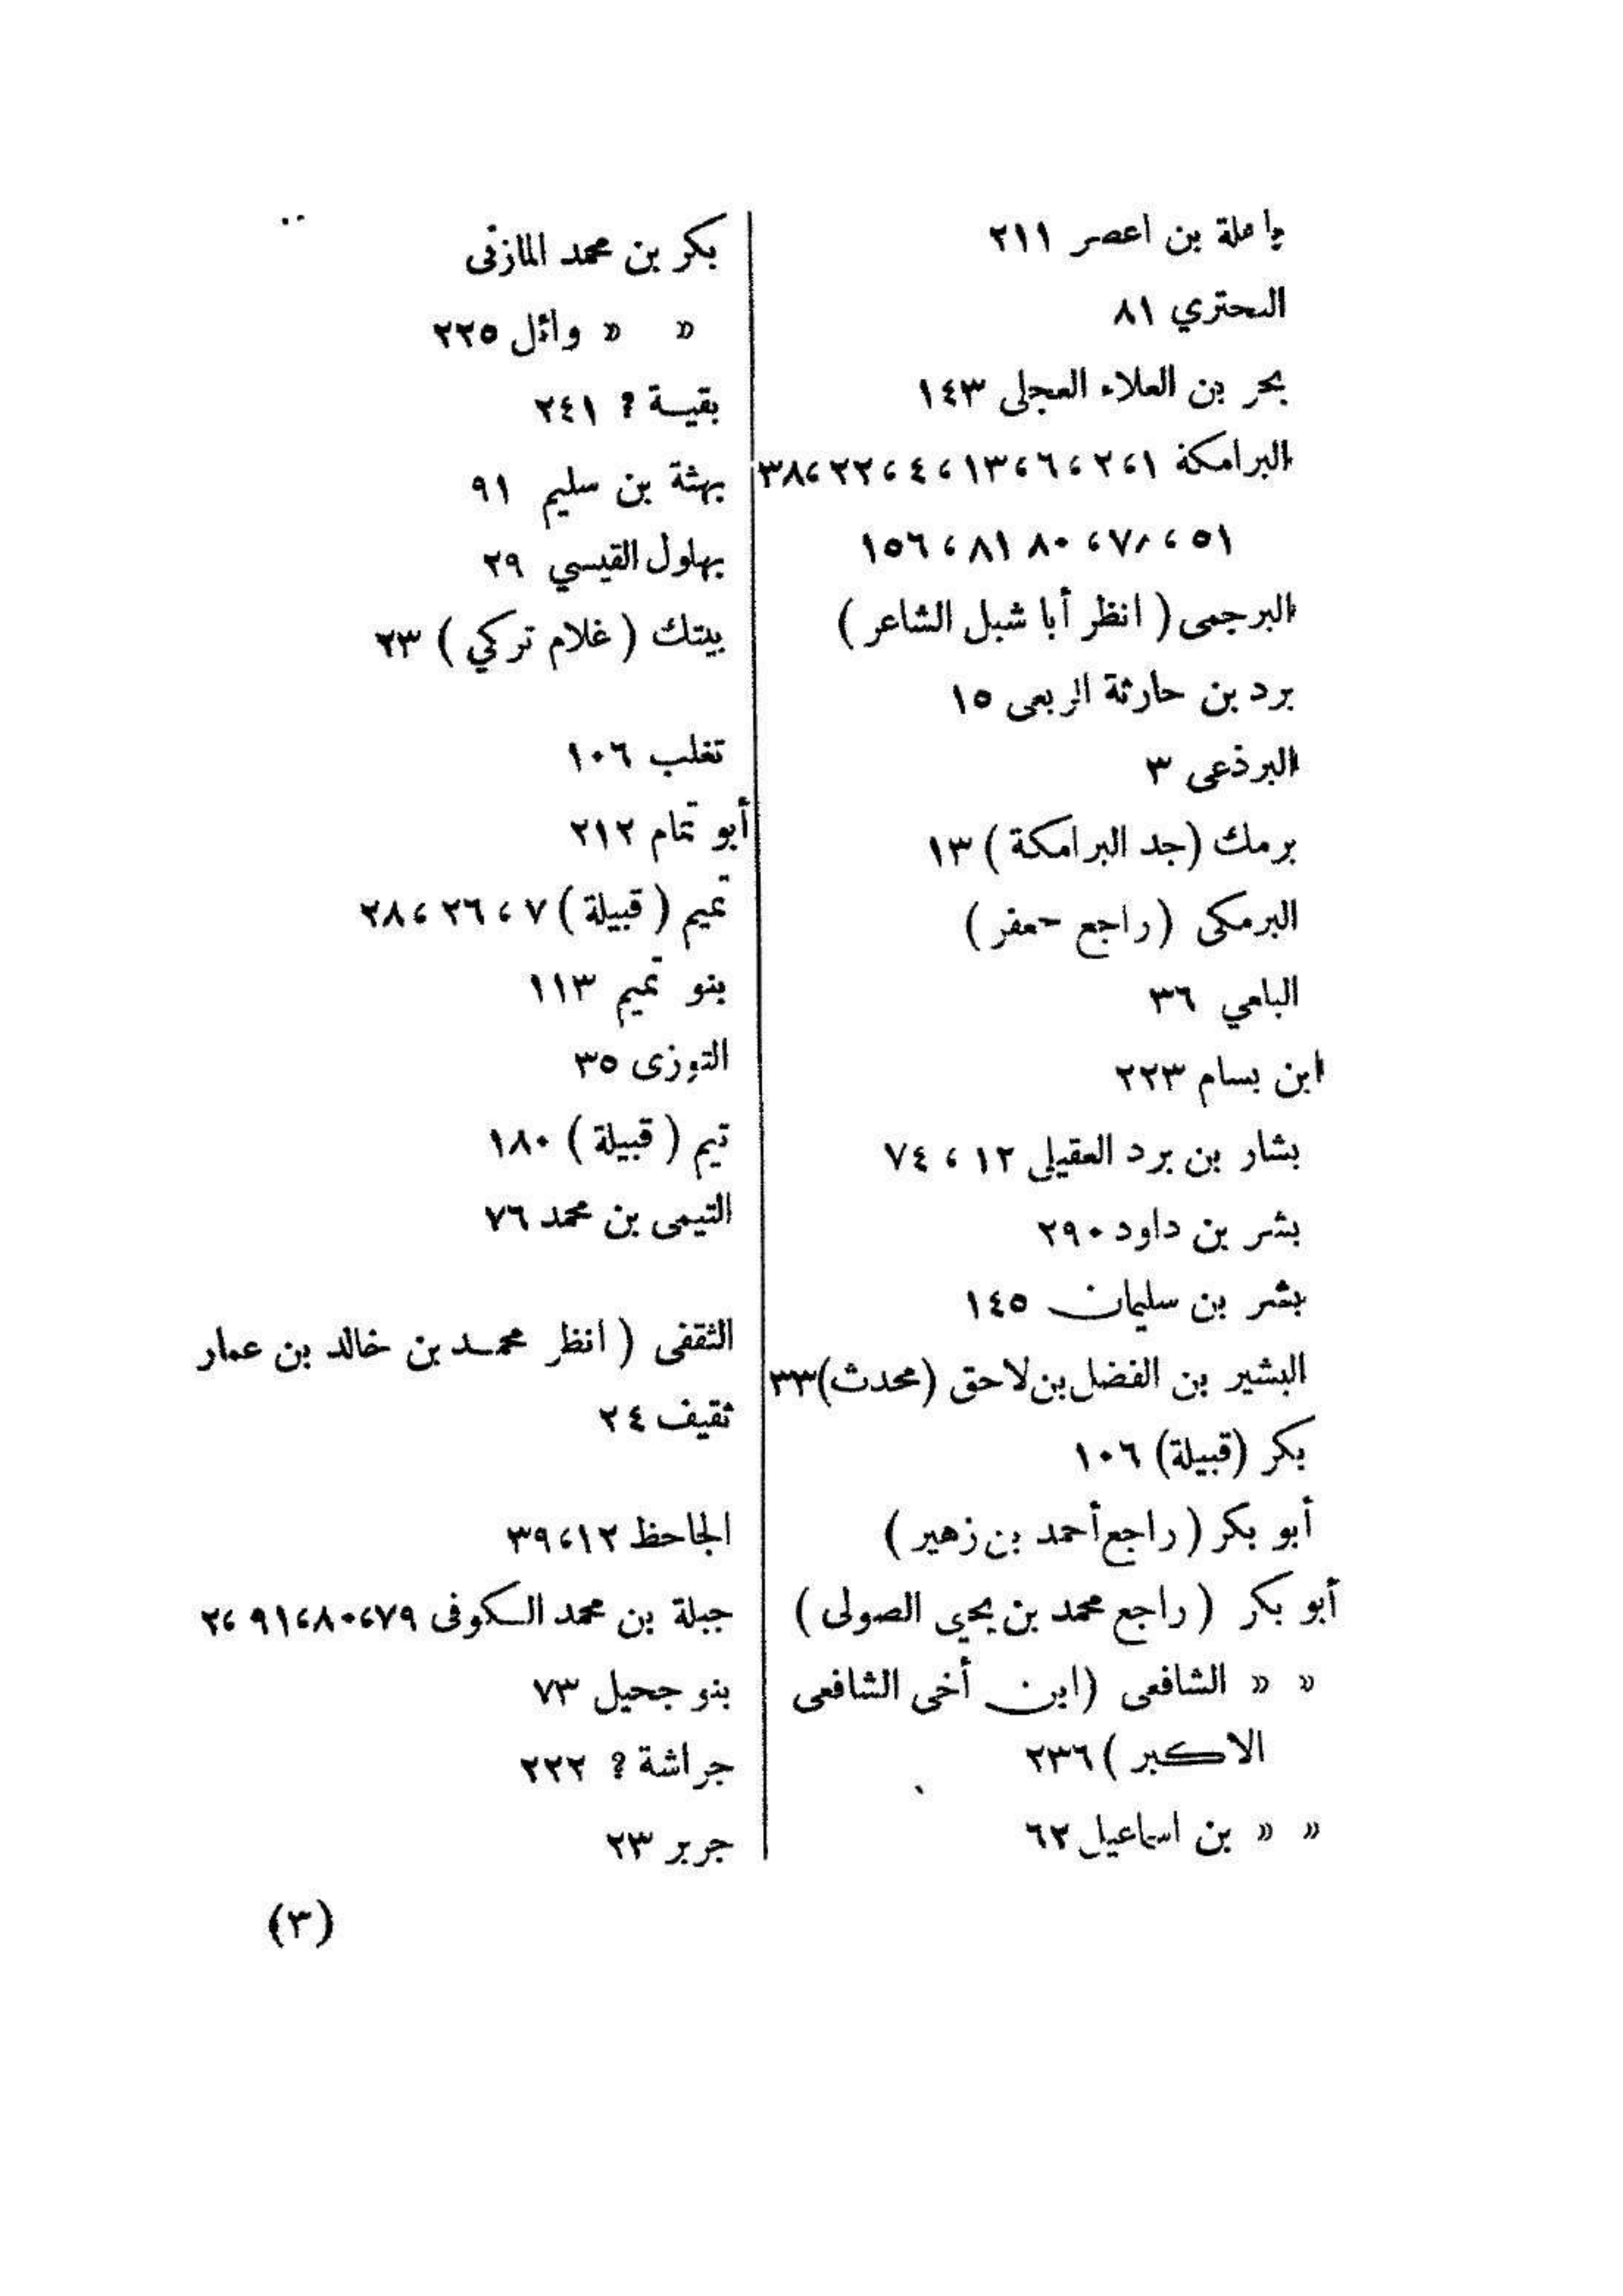 باهلة بن اعصر ٢١١
البحتري ٨١
بحر بن العلاء العجلى ١٤٣
البرامكة ١،٢ ، ٦،١٣ ، ٤ ، ٢٢،٣٨
٥١ ، ٧٨، ٨٠ ٨١ ، ١٥٦
البرجمى ( انظر أبا شبل الشاعر )
برد بن حارثة الربعى ١٥
البرذعى ٣
برمك (جد البرامكة ) ١٣
البرمكى ( راجع جعفر )
البامي ٣٦
ابن بسام ٢٢٣
بشار بن برد العقيلى ١٢ ، ٧٤
بشر بن داود ٢٩٠
بشر بن سليمان ١٤٥
البشير بن الفضل بن لاحق (محدث) ٣٣
بكر (قبيلة) ١٠٦
أبو بكر ( راجع أحمد بن زهير )
أبو بكر ( راجع محمد بن يحيى الصولى )
» » الشافعى (ابن أخى الشافعى
الاكبر ) ٢٣٦
» » بن اسماعيل ٦٢
بكر بن محمد المازنى
» » وائل ٢٢٥
بقية ؟ ٢٤١
بهثة بن سليم ٩١
بهلول القيسي ٢٩
بيتك ( غلام تركي ) ٢٣
تغلب ١٠٦
أبو تمام ٢١٢
تميم ( قبيلة ) ٧ ، ٢٦ ، ٢٨
بنو تميم ١١٣
التوزى ٣٥
تيم ( قبيلة ) ١٨٠
التيمى بن محمد ٧٦
الثقفى ( انظر محمد بن خالد بن عمار
ثقيف ٢٤
الجاحظ ١٢،٣٩
جبلة بن محمد الكوفى ٧٩،٨٠،٩١ ،٢
بنو جحيل ٧٣
جراشة ؟ ٢٢٢
جرير ٢٣
(٣)